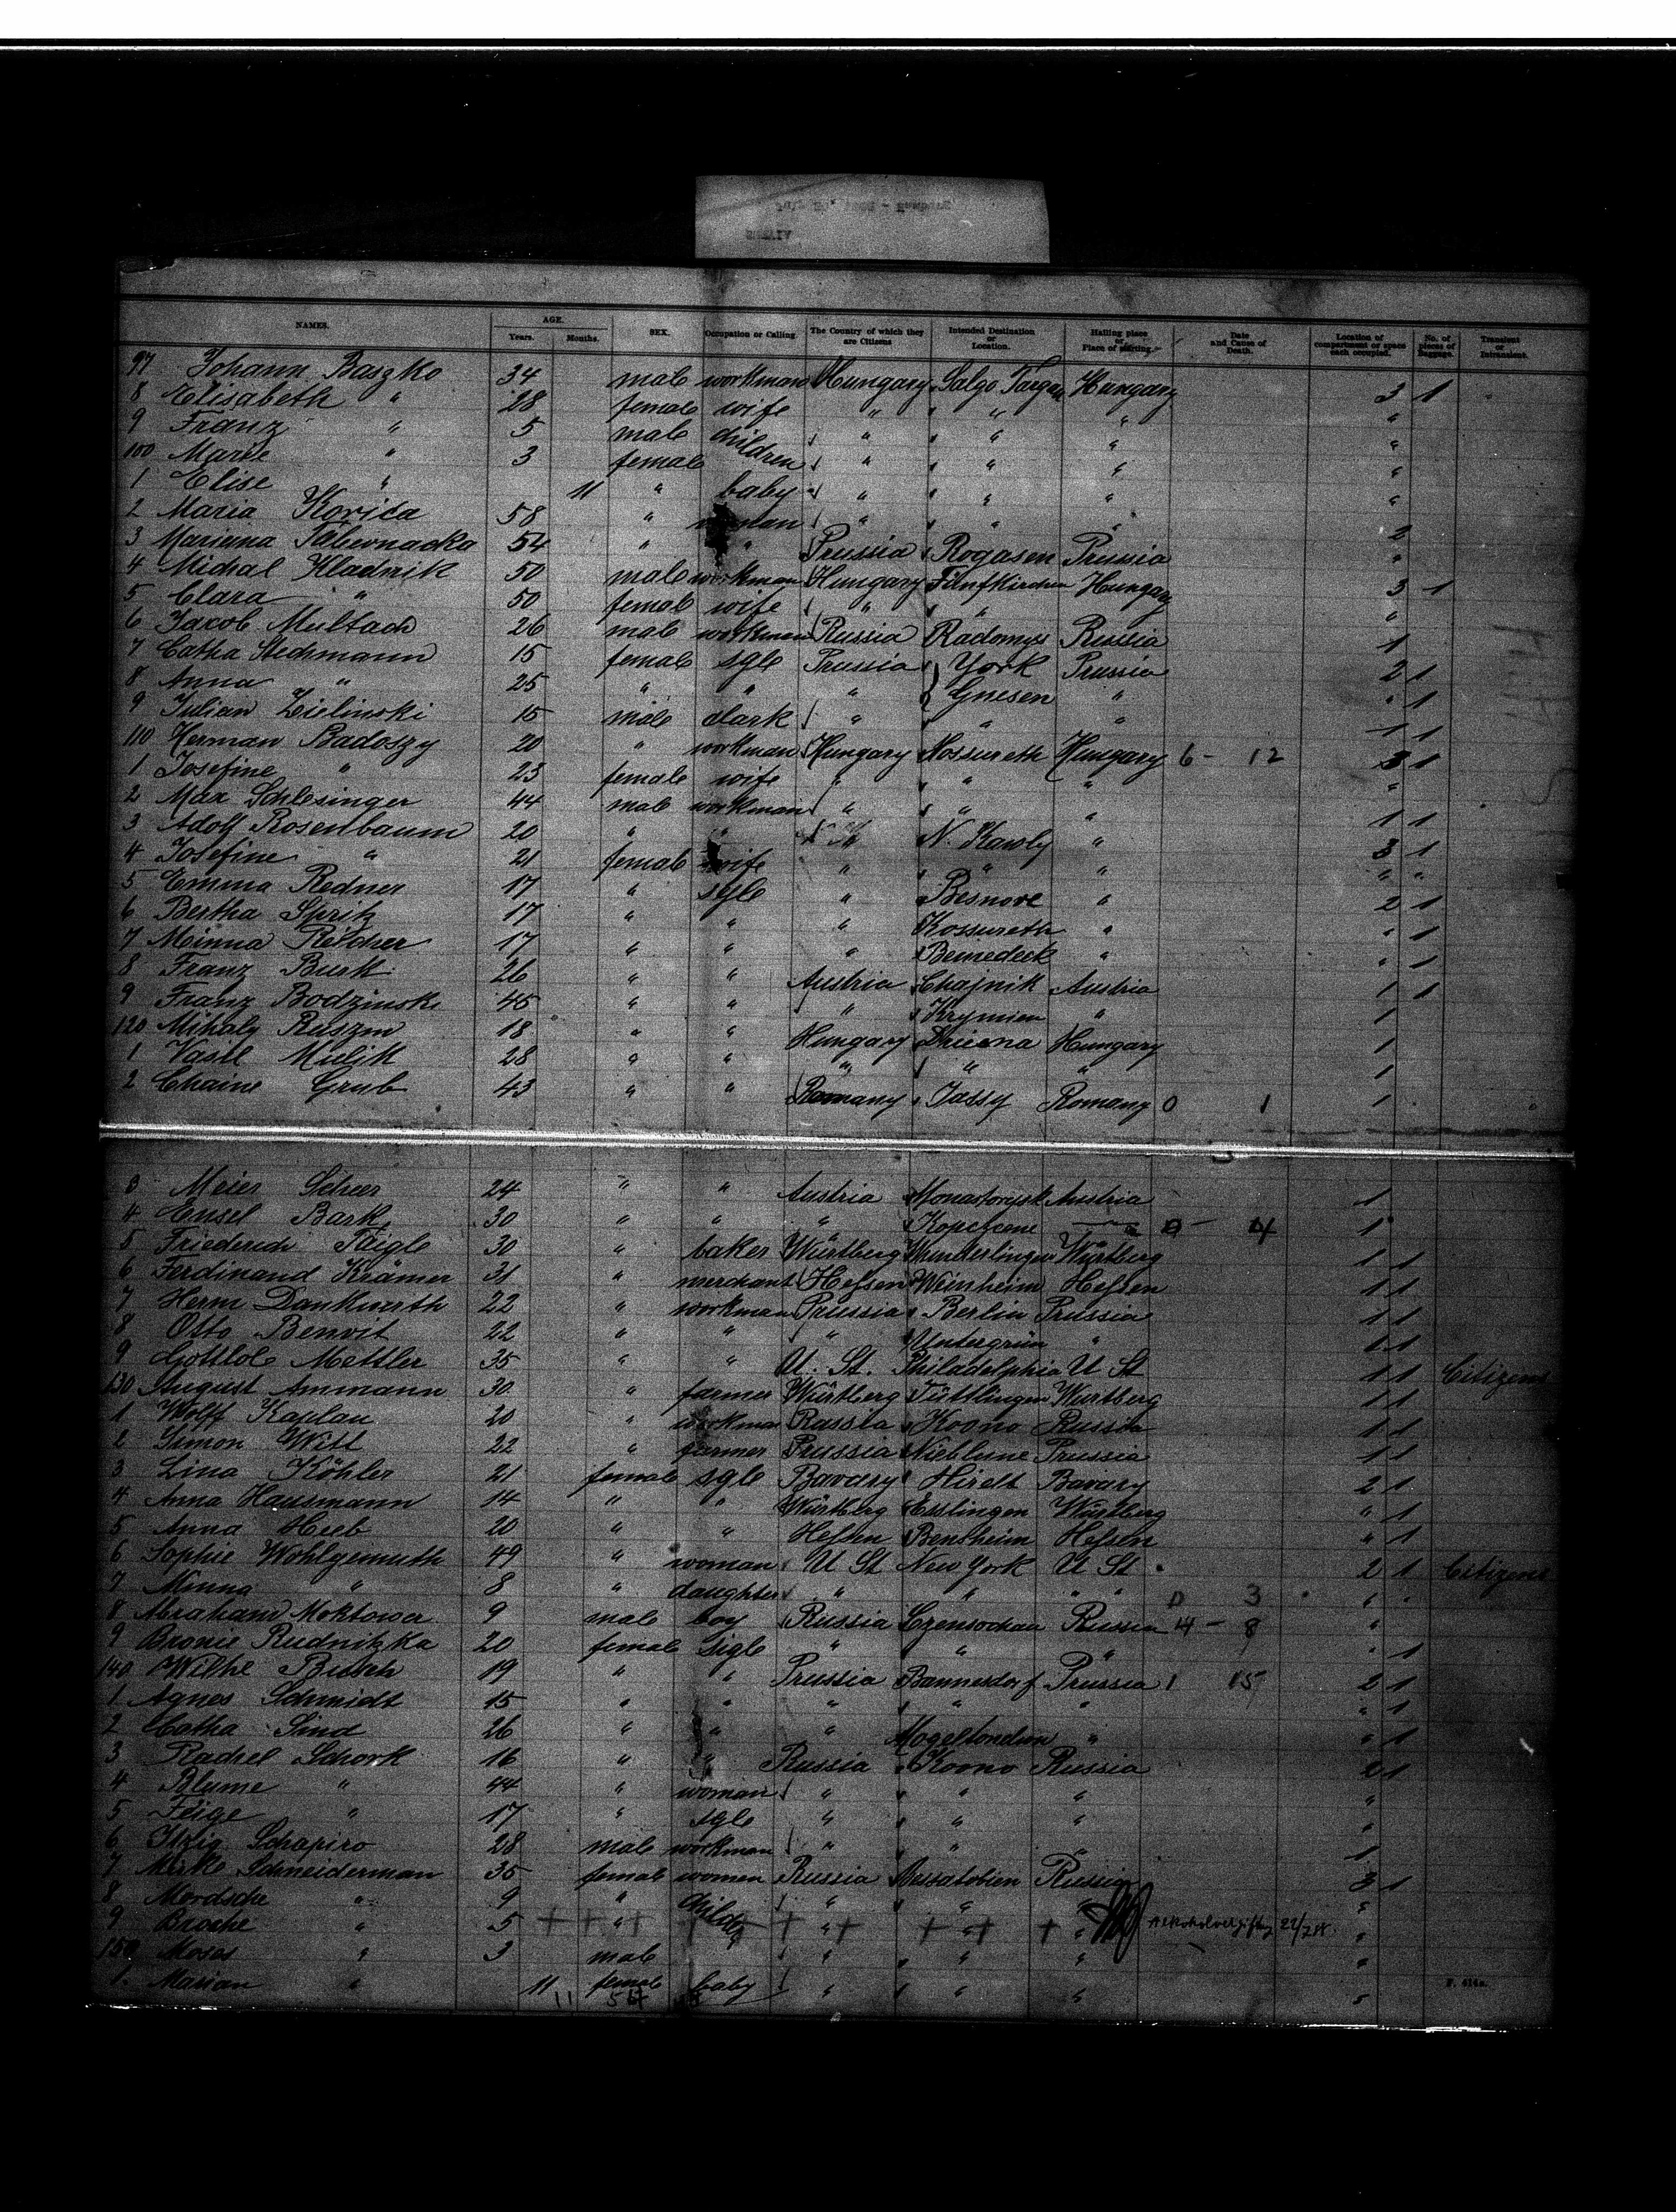 NAMES. AGE. Years. Months. SEX. Occupation or Calling. The Country of which they are Citizens Intended Destination or Location. Hailing place or Place of starting. Date and Cause of Death. Location of compartment or space each occupied. No. of pieces of Baggage. Transient or Intransient.
97 Johann Baszko 34 male workman Hungary Salgo Hungary 3 1
8 Elisabeth " 28 female wife " " " "
9 Franz " 5 male children " " " "
100 Marie " 3 female " " " "
1 Elise " 11 " baby " " " "
2 Maria 58 " woman " " " 2
3 Marianna 54 " " Prussia Rogasen Prussia "
4 Michal Kladnik 50 male workman Hungary Fünfkirchen Hungary 3 1
5 Clara " 50 female wife " " "
6 Jacob Multach 26 male workman Russia Radomys Russia 1
7 Catha Stechmann 15 female sgle Prussia York Prussia 2 1
8 Anna " 25 " " " Gnesen " " 1
9 Julian Zielinski 15 male clark " " " 1 1
110 Herman Badoszy 20 " workman Hungary Kossureth Hungary 6 - 12 3 1
1 Josefine " 23 female wife " " " "
2 Max Schlesinger 44 male workman " " " 1 1
3 Adolf Rosenbaum 20 " " " N. Karoly " 3 1
4 Josefine " 21 female wife " " " " "
5 Emma Redner 17 " sgle " Besnove " 2 1
6 Bertha Spritz 17 " " " Kossureth " " 1
7 Minna 17 " " " Benedeck " " 1
8 Franz Burk 26 " " Austria Chajnik Austria 1 1
9 Franz Bodzinski 45 " " " " 1
120 Mihaly Ruszin 18 " " Hungary Hungary 1
1 Vasil Mulik 28 " " " " " 1
2 Chaine Grub 43 " " Romany Jassy Romany 0 1 1
3 Meier Scheer 24 " " Austria Monastorysk Austria 1
4 Ensel Bark 30 " " " " 0 - 4 1
5 Friederich 30 " baker Würtberg Würtberg 1 1
6 Ferdinand Krämer 31 " merchant Hessen Weinheim Hessen 1 1
7 Herm Dankwarth 22 " workman Prussia Berlin Prussia 1 1
8 Otto Benoit 22 " " " Untergrün " 1 1
9 Gottlob Mettler 35 " " U. St. Philadelphia U St 1 1 Citizens
130 August Ammann 30 " farmer Würtberg Tüttlingen Würtberg 1 1
1 Wolff Kaplan 20 " workman Russia Kovno Russia 1 1
2 Simon Will 22 " farmer Prussia Nieblume Prussia 1 1
3 Lina Köhler 21 female sgle Bavary Bavary 2 1
4 Anna Hausmann 14 " " Würtberg Esslingen Würtberg " 1
5 Anna Heeb 20 " " Hessen Bensheim Hessen " 1
6 Sophie Wohlgemuth 49 " woman U St New York U St 2 1 Citizens
7 Minna " 8 " daughter " " " 0 3 "
8 Abraham Moktower 9 male boy Russia Czenstochau Russia 14 - 8 "
9 Bronie Rudnitzka 20 female Sigle " " " " 1
140 Wilhe Busch 19 " " Prussia Bannesdorf Prussia 1 15 2 1
1 Agnes Schmidt 15 " " " " " " 1
2 Catha Lind 26 " " " Mogeltondern " " 1
3 Rachel Schork 16 " " Russia Kovno Russia 2 1
4 Blume " 44 " woman " " " "
5 Feige " 17 " sgle " " " "
6 Itzig Schapiro 28 male workman " " " 1
7 Mirke Schneiderman 35 female women Russia Bessarabien Russia 3 1
8 Mordsche " 9 " children " " " "
9 Broche " 5 " " " " " 22/7 "
150 Moses " 3 male " " " "
1 Marian " 11 female baby " " " "
11 54